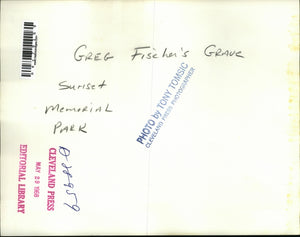 GREG FISCHER'S GRAVE
SUNSET
MEMORIAL
PARK
PHOTO by TONY TOMSIC
CLEVELAND PRESS PHOTOGRAPHER
CLEVELAND PRESS
MAY 29 1968
EDITORIAL LIBRARY